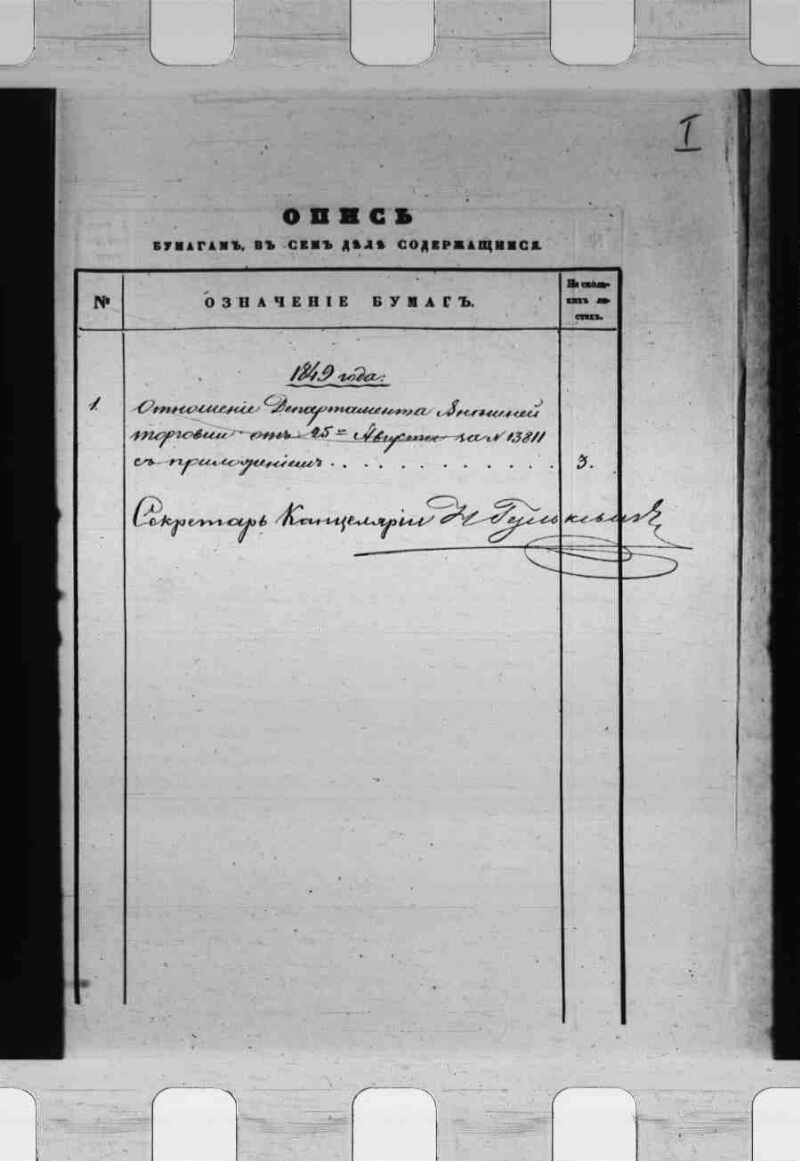 I
ОПИСЬ
БУМАГАМЪ, ВЪ СЕМЪ ДѢЛѢ СОДЕРЖАЩИМСЯ.
№
ОЗНАЧЕНІЕ БУМАГЪ.
На сколь-
кихъ ли-
стахъ.
1849 года.
1. Отношеніе Департамента Внѣшней
торговли отъ 25 Августа за № 13811
съ приложеніемъ . . . . . . . . . . . 3.
Секретарь Канцеляріи